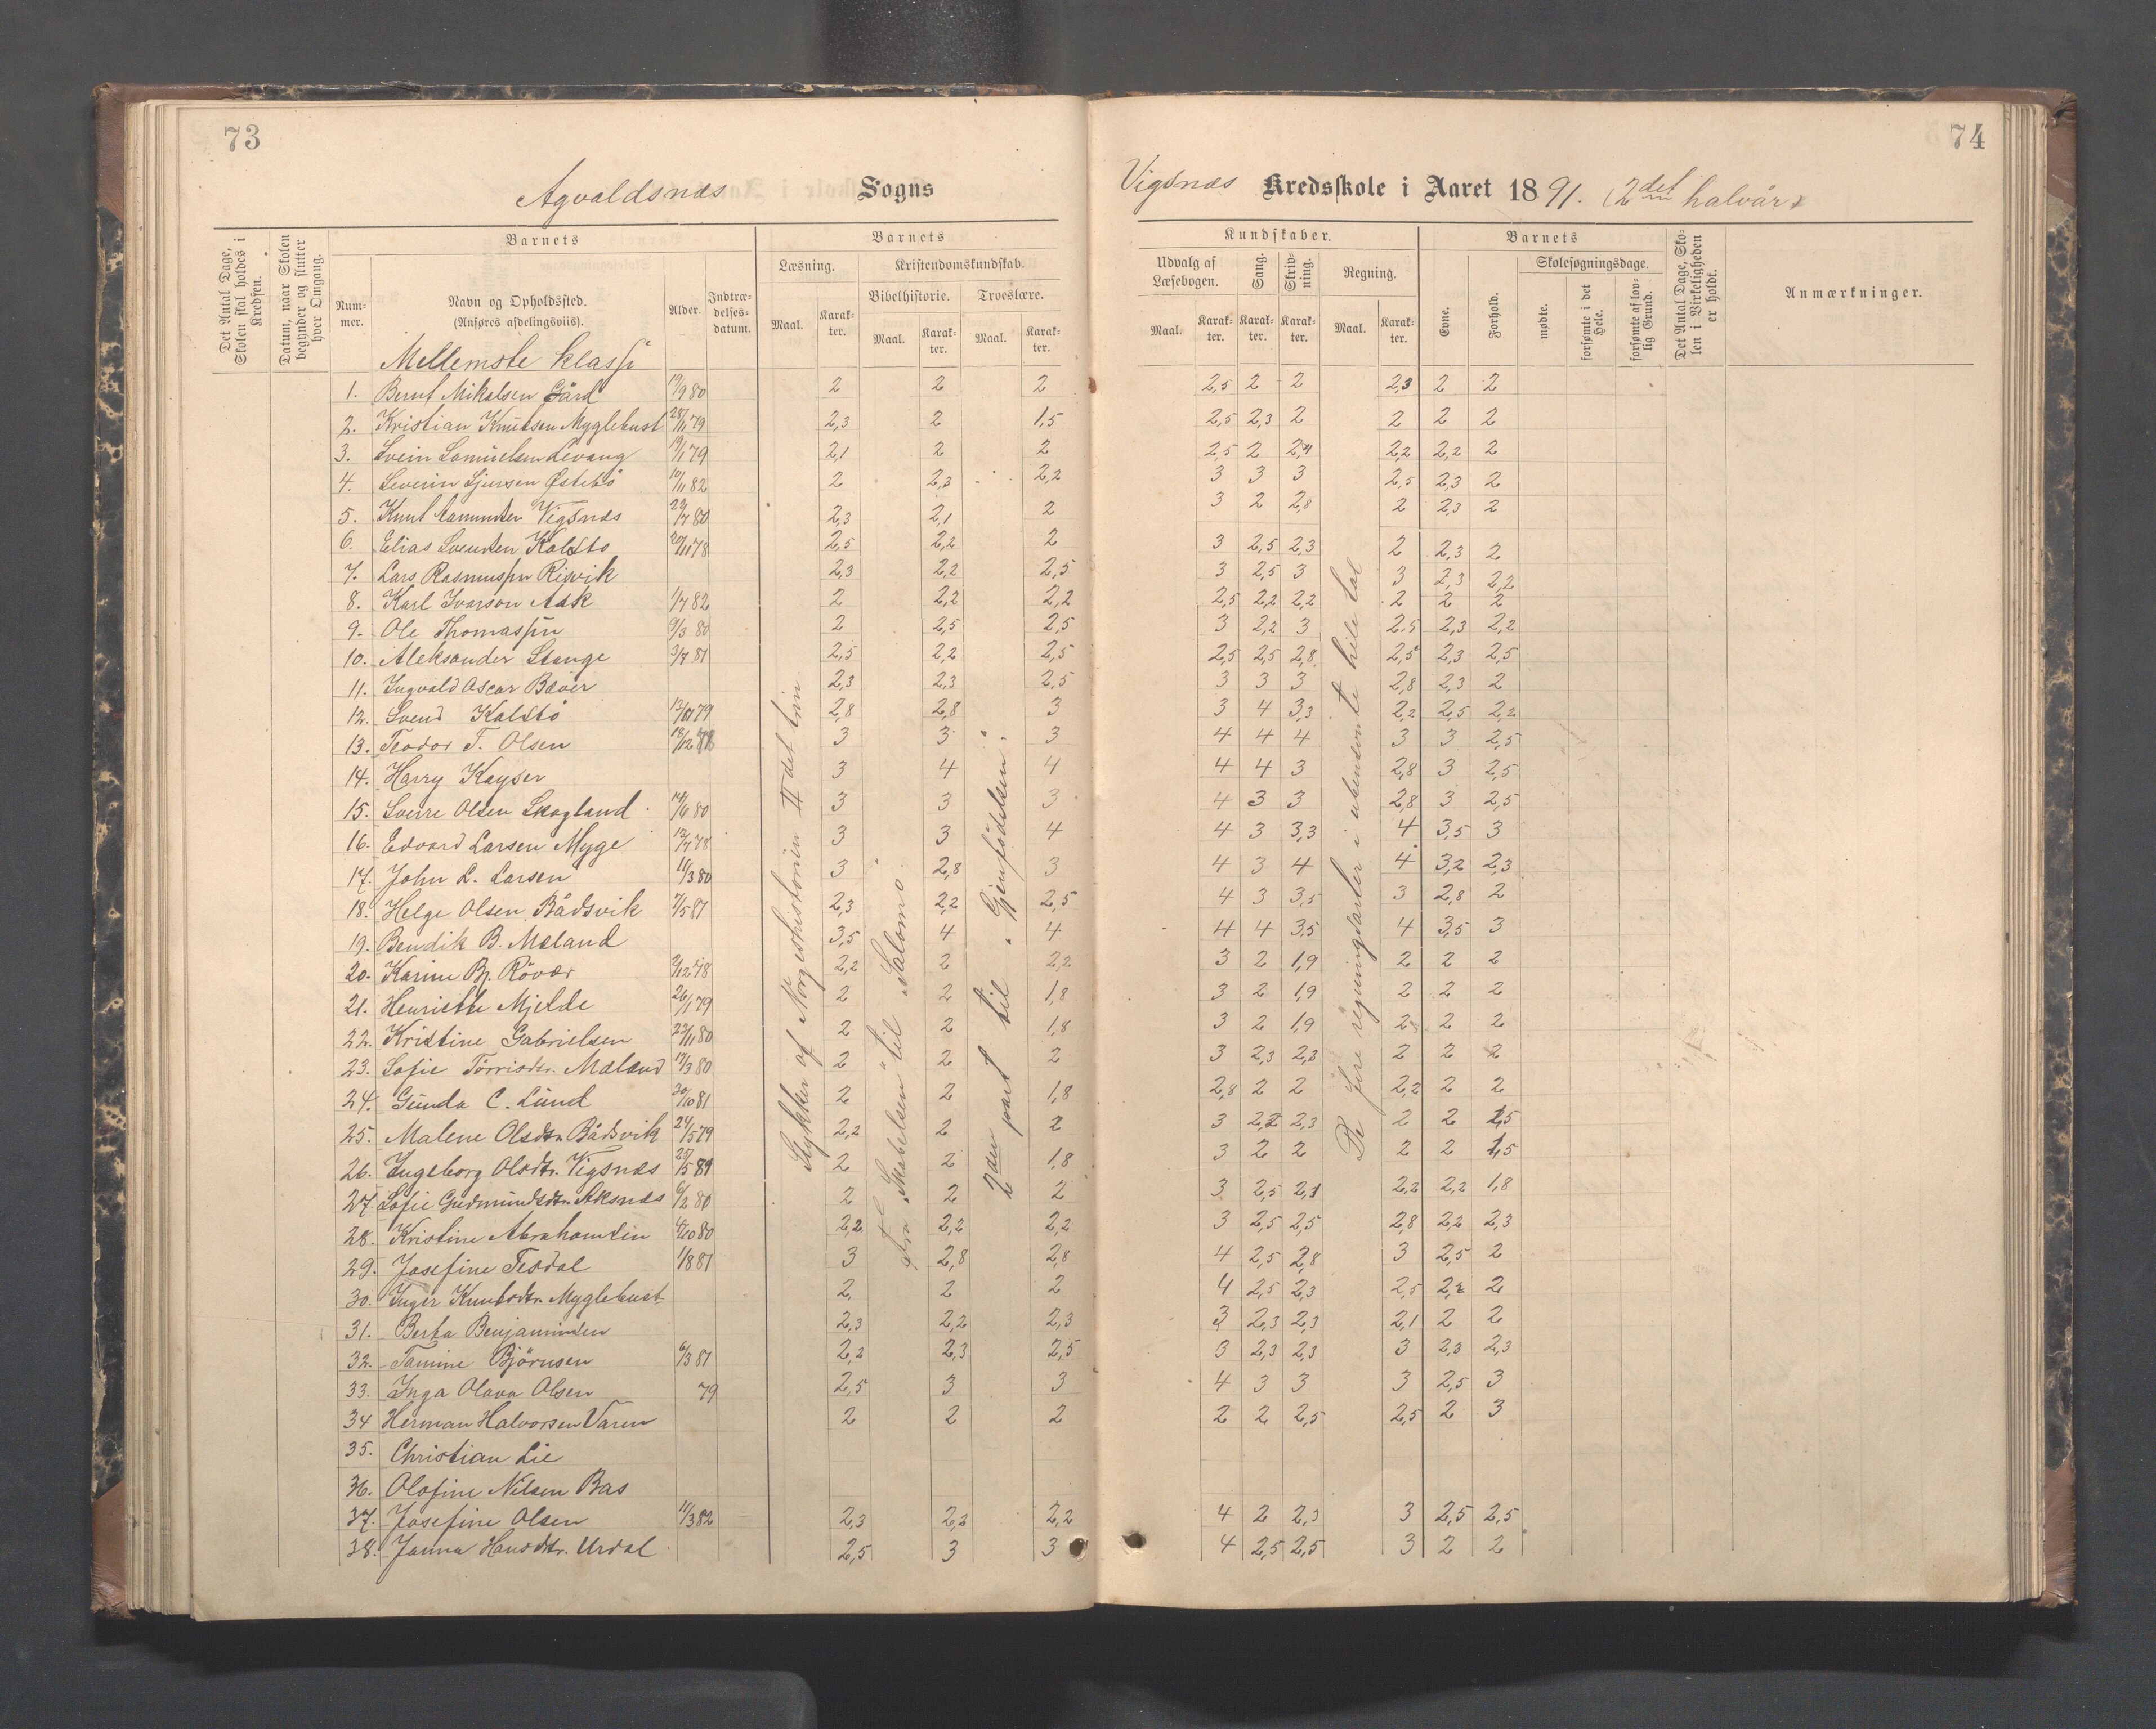 73
74
Agvaldsnæs Sogns
Vigsnæs Kredsskole i Aaret 1891. (2det halvår)
Det Antal Dage, Skolen skal holdes i Kredsen.
Datum, naar Skolen begynder og slutter hver Omgang.
Barnets
Nummer.
Navn og Opholdssted. (Anføres afdelingsviis).
Alder.
Indtrædelsesdatum.
Barnets
Læsning.
Maal.
Karakter.
Kristendomskundskab.
Bibelhistorie.
Maal.
Karakter.
Troeslære.
Maal.
Karakter.
Kundskaber.
Udvalg af Læsebogen.
Maal.
Karakter.
Sang.
Karakter.
Skrivning.
Karakter.
Regning.
Maal.
Karakter.
Barnets
Evne.
Forhold.
Skolesøgningsdage.
mødte.
forsømte i det Hele.
forsømte af lovlig Grund.
Det Antal Dage, Skolen i Virkeligheden er holdt.
Anmærkninger.
Mellemste klasse
1. Bernt Mikalsen Gård 19/9 80 2 2 2 2,5 2 2 2,3 2 2
2. Kristian Knutsen Myglebust 28/11 79 2,3 2 1,5 2,5 2,3 2 2 2 2
3. Svein Samuelsen Levang 19/1 79 2,1 2 2 2,5 2 2,4 2,2 2,2 2
4. Severin Sjursen Østebö 10/11 82 2 2,3 2,2 3 3 3 2,5 2,3 2
5. Knut Amundsen Vigsnæs 29/7 80 2,3 2,1 2 3 2 2,8 2 2,3 2
6. Elias Svendsen Kalstö 20/11 78 2,5 2,2 2 3 2,5 2,3 2 2,3 2
7. Lars Rasmussen Risvik 2,3 2,2 2,5 3 2,5 3 3 2,3 2,2
8. Karl Ivarson Ask 1/7 82 2 2,2 2,2 2,5 2,2 2,2 2 2 2
9. Ole Thomassen 9/3 80 2 2,5 2,5 3 2,2 3 2,5 2,3 2,2
10. Aleksander Stange 3/7 81 2,5 2,2 2,5 2,5 2,5 2,8 2,5 2,3 2,5
11. Ingvald Oscar Bæver 2,3 2,3 2,5 3 3 3 2,8 2,3 2
12. Svend Kalstö 79 2,8 2,8 3 3 4 3,3 2,2 2,5 2,2
13. Teodor T. Olsen 18/12 78 3 3 3 4 4 4 3 3 2,5
14. Harry Kayser 3 4 4 4 4 3 2,8 3 2,5
15. Sverre Olsen Skogland 14/6 80 3 3 3 4 3 3 2,8 3 2,5
16. Edvard Larsen Myge 12/7 78 3 3 4 4 3 3,3 4 3,5 3
17. John L. Larsen 11/3 80 3 2,8 3 4 3 4 4 3,2 2,3
18. Helge Olsen Bådsvik 7/5 81 2,3 2,2 2,5 4 3 3,5 3 2,8 2
19. Bendik B. Mæland 3,5 4 4 4 4 3,5 4 3,5 3
20. Karine Bj. Rövær 2/12 78 2,2 2 2,2 3 2 1,9 2 2 2
21. Henriette Mjelde 26/1 79 2 2 1,8 3 2 1,9 2 2 2
22. Kristine Gabrielsen 23/11 80 2 2 1,8 3 2 1,9 2 2 2
23. Sofie Torrisdtr. Mæland 17/3 80 2 2 2 3 2,3 2,3 2 2 2
24. Gunda C. Lund 30/10 81 2 2 1,8 2,8 2 2 2,2 2 2
25. Malene Olsdtr. Bådsvik 24/5 79 2,2 2 2 3 2,2 2,3 2 2 1,5
26. Ingeborg Olsdtr. Vigsnæs 25/5 81 2 2 1,8 3 2 2 2 2 1,5
27. Sofie Gudmundsdtr. Aksnæs 6/2 80 2 2 2 3 2,5 2,1 2,2 2,2 1,8
28. Kristine Abrahamsen 4/10 80 2,2 2,2 2,2 3 2,5 2,5 2,8 2,2 2,3
29. Josefine Tesdal 1/8 81 3 2,8 2,8 4 2,5 2,8 3 2,5 2
30. Inger Knutsdtr. Myglebust 2 2 2 4 2,5 2,3 2,5 2,2 2
31. Berta Benjaminsen 2,3 2,2 2,3 3 2,3 2,3 2,1 2 2
32. Tamine Björnsen 6/3 81 2,2 2,3 2,5 3 2,3 2,3 3 2,3 2,3
33. Inga Olava Olsen 79 2,5 3 3 4 3 3 3 2,5 3
34 Herman Halvorsen Våren 2 2 2 2 2 2,5 2,5 2 3
35. Christian Lie
36. Olafine Nilsen Bas
37. Josefine Olsen 11/3 82 2,3 2,3 2,2 4 2 2,3 3 2,5 2,5
38. Janna Hansdtr. Urdal 2,5 3 3 4 2,5 2,5 3 2 2
Stykker af Norgeshistorien II det trin
fra "Skabelsen" til "Salomo"
2den part til "Gjenfödelsen".
De fire regningsarter i ubenævnte hele tal